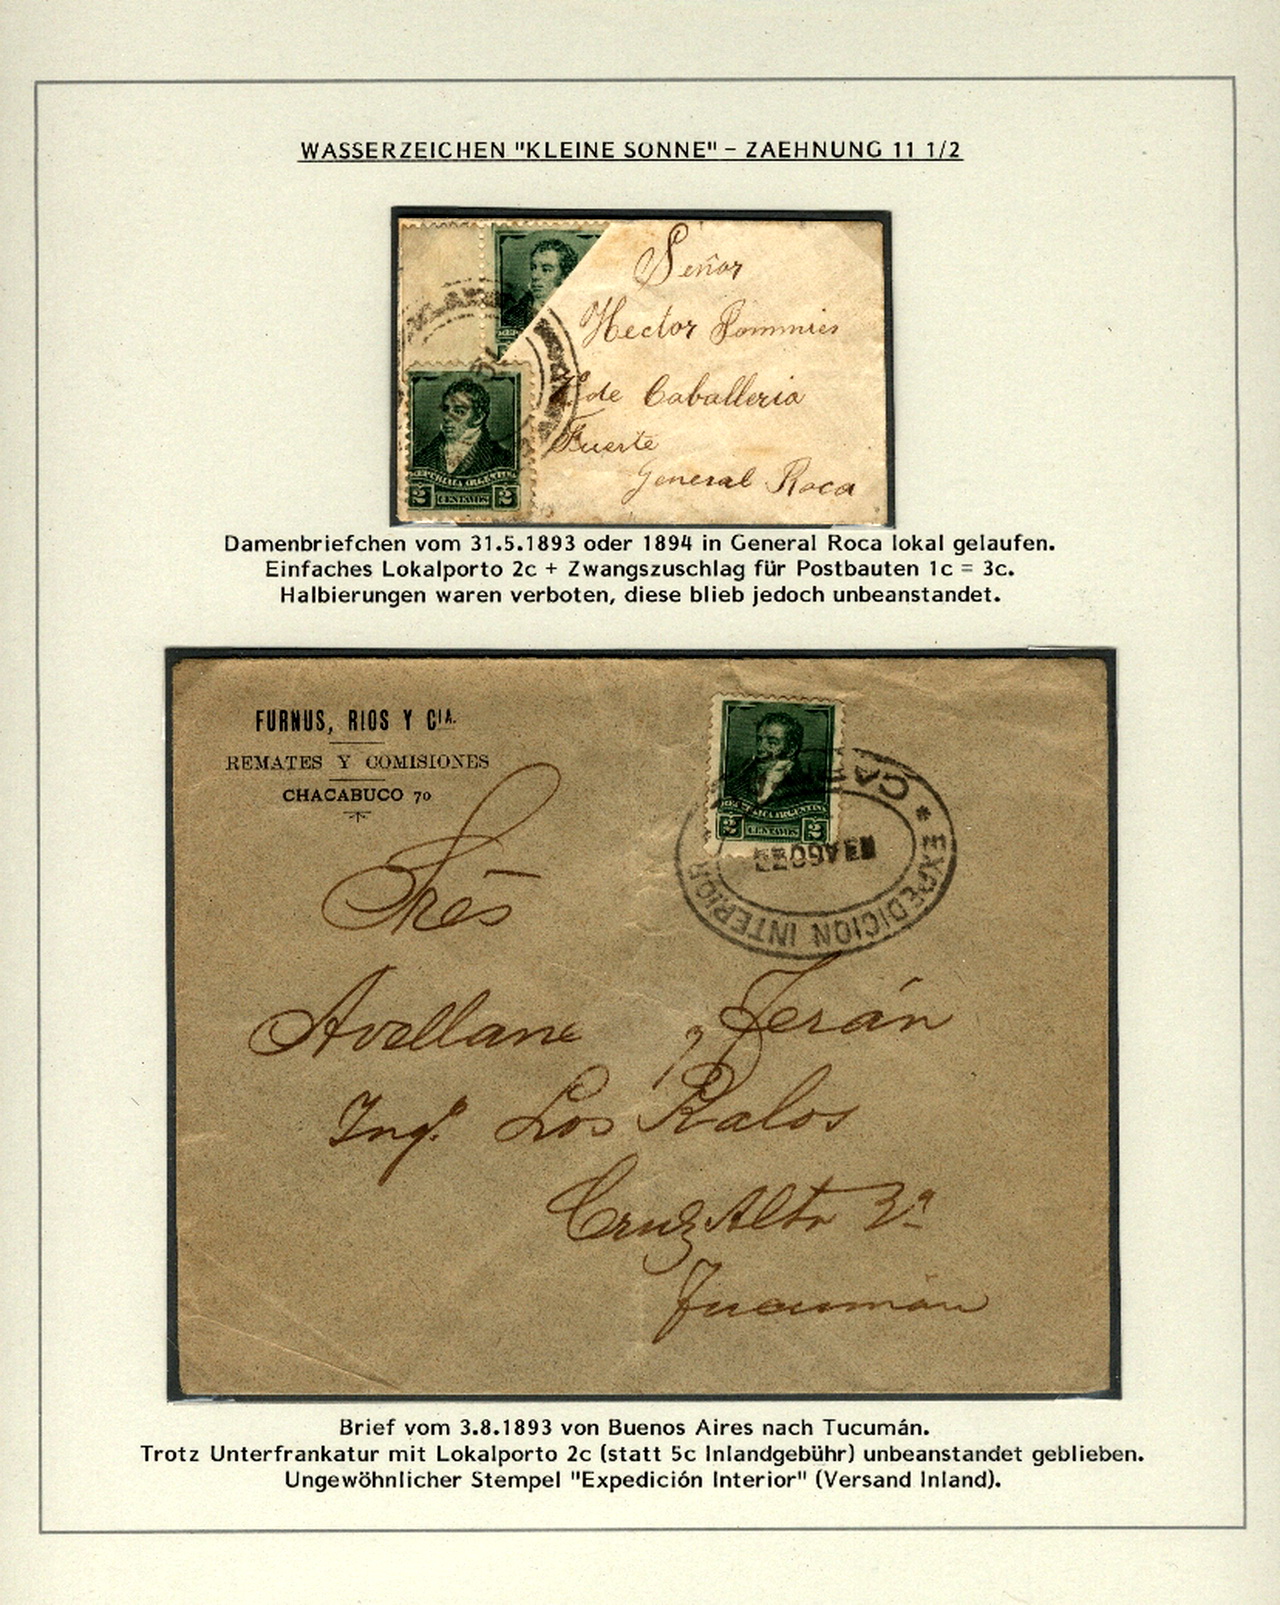 WASSERZEICHEN "KLEINE SONNE" - ZAEHNUNG 11 1/2
Señor
Hector Pommies
de Caballeria
Fuerte
General Roca
REPUBLICA ARGENTINA
2 CENTAVOS 2
Damenbriefchen vom 31.5.1893 oder 1894 in General Roca lokal gelaufen.
Einfaches Lokalporto 2c + Zwangszuschlag für Postbauten 1c = 3c.
Halbierungen waren verboten, diese blieb jedoch unbeanstandet.
FURNUS, RIOS Y CIA.
REMATES Y COMISIONES
CHACABUCO 70
REPUBLICA ARGENTINA
2 CENTAVOS 2
* EXPEDICION INTERIOR
AGO
Sres
Avellane y Terán
Ingo. Los Ralos
Cruz Alta 2a
Tucumán
Brief vom 3.8.1893 von Buenos Aires nach Tucumán.
Trotz Unterfrankatur mit Lokalporto 2c (statt 5c Inlandgebühr) unbeanstandet geblieben.
Ungewöhnlicher Stempel "Expedición Interior" (Versand Inland).